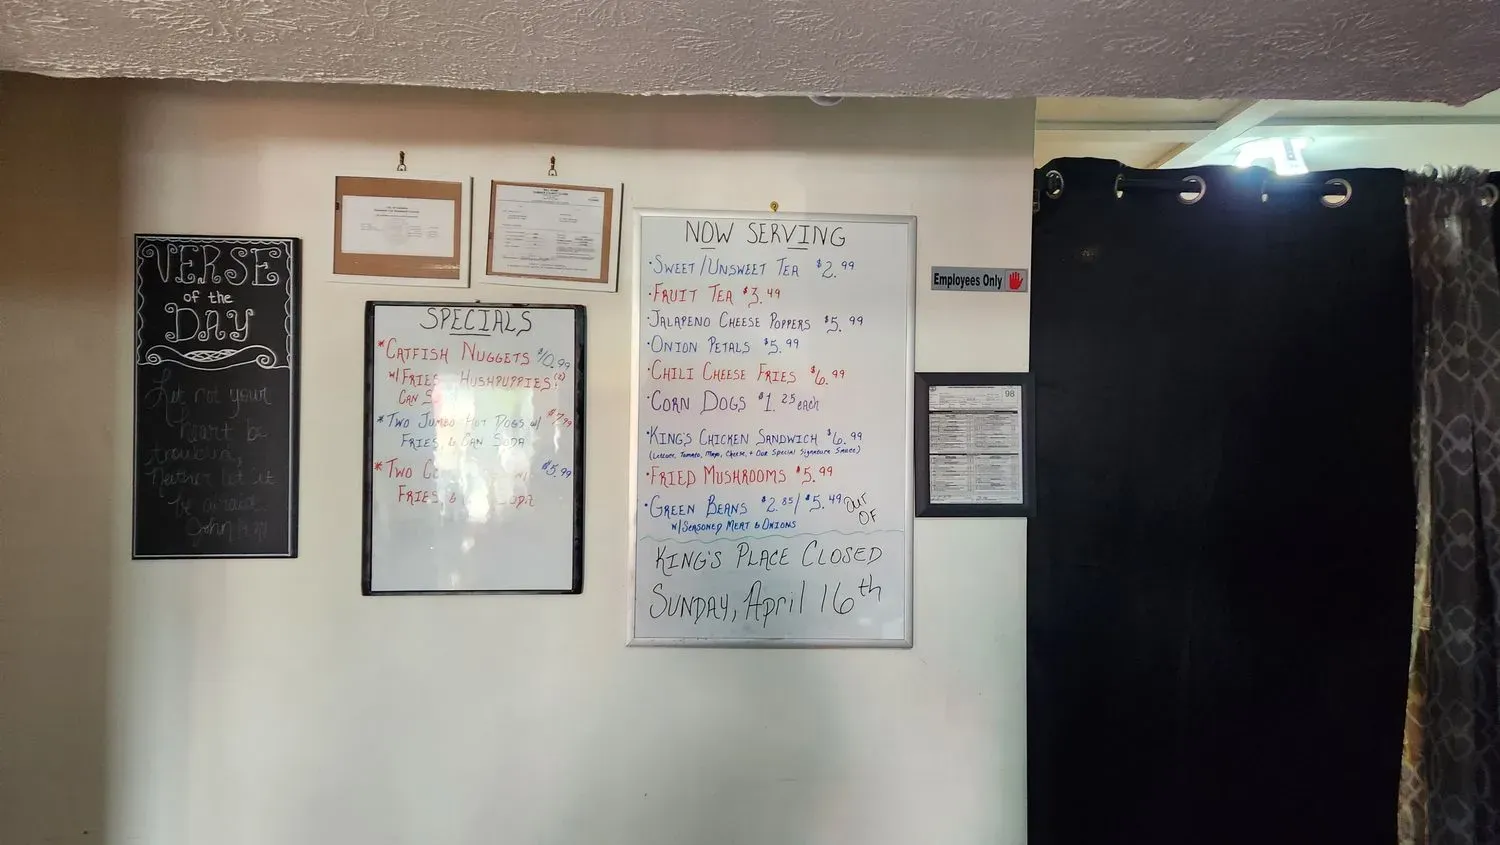 VERSE
of the
DAY
Let not your
heart be
Neither let it
be afraid.
John
SPECIALS
*CATFISH NUGGETS $10.99
W/ FRIES HUSHPUPPIES! (2)
CAN
*TWO JUMBO HOT DOGS W/ $7.99
FRIES & CAN SODA
*TWO $5.99
FRIES & SODA
NOW SERVING
·SWEET/UNSWEET TEA $2.99
·FRUIT TEA $3.49
·JALAPENO CHEESE POPPERS $5.99
·ONION PETALS $5.99
·CHILI CHEESE FRIES $6.99
·CORN DOGS $1.25 each
·KING'S CHICKEN SANDWICH $6.99
(Lettuce, Tomato, Mayo, Cheese, + Our Special Signature Sauce)
·FRIED MUSHROOMS $5.99
·GREEN BEANS $2.85/$5.49 OUT OF
W/ SEASONED MEAT & ONIONS
KING'S PLACE CLOSED
SUNDAY, April 16th
Employees Only
98